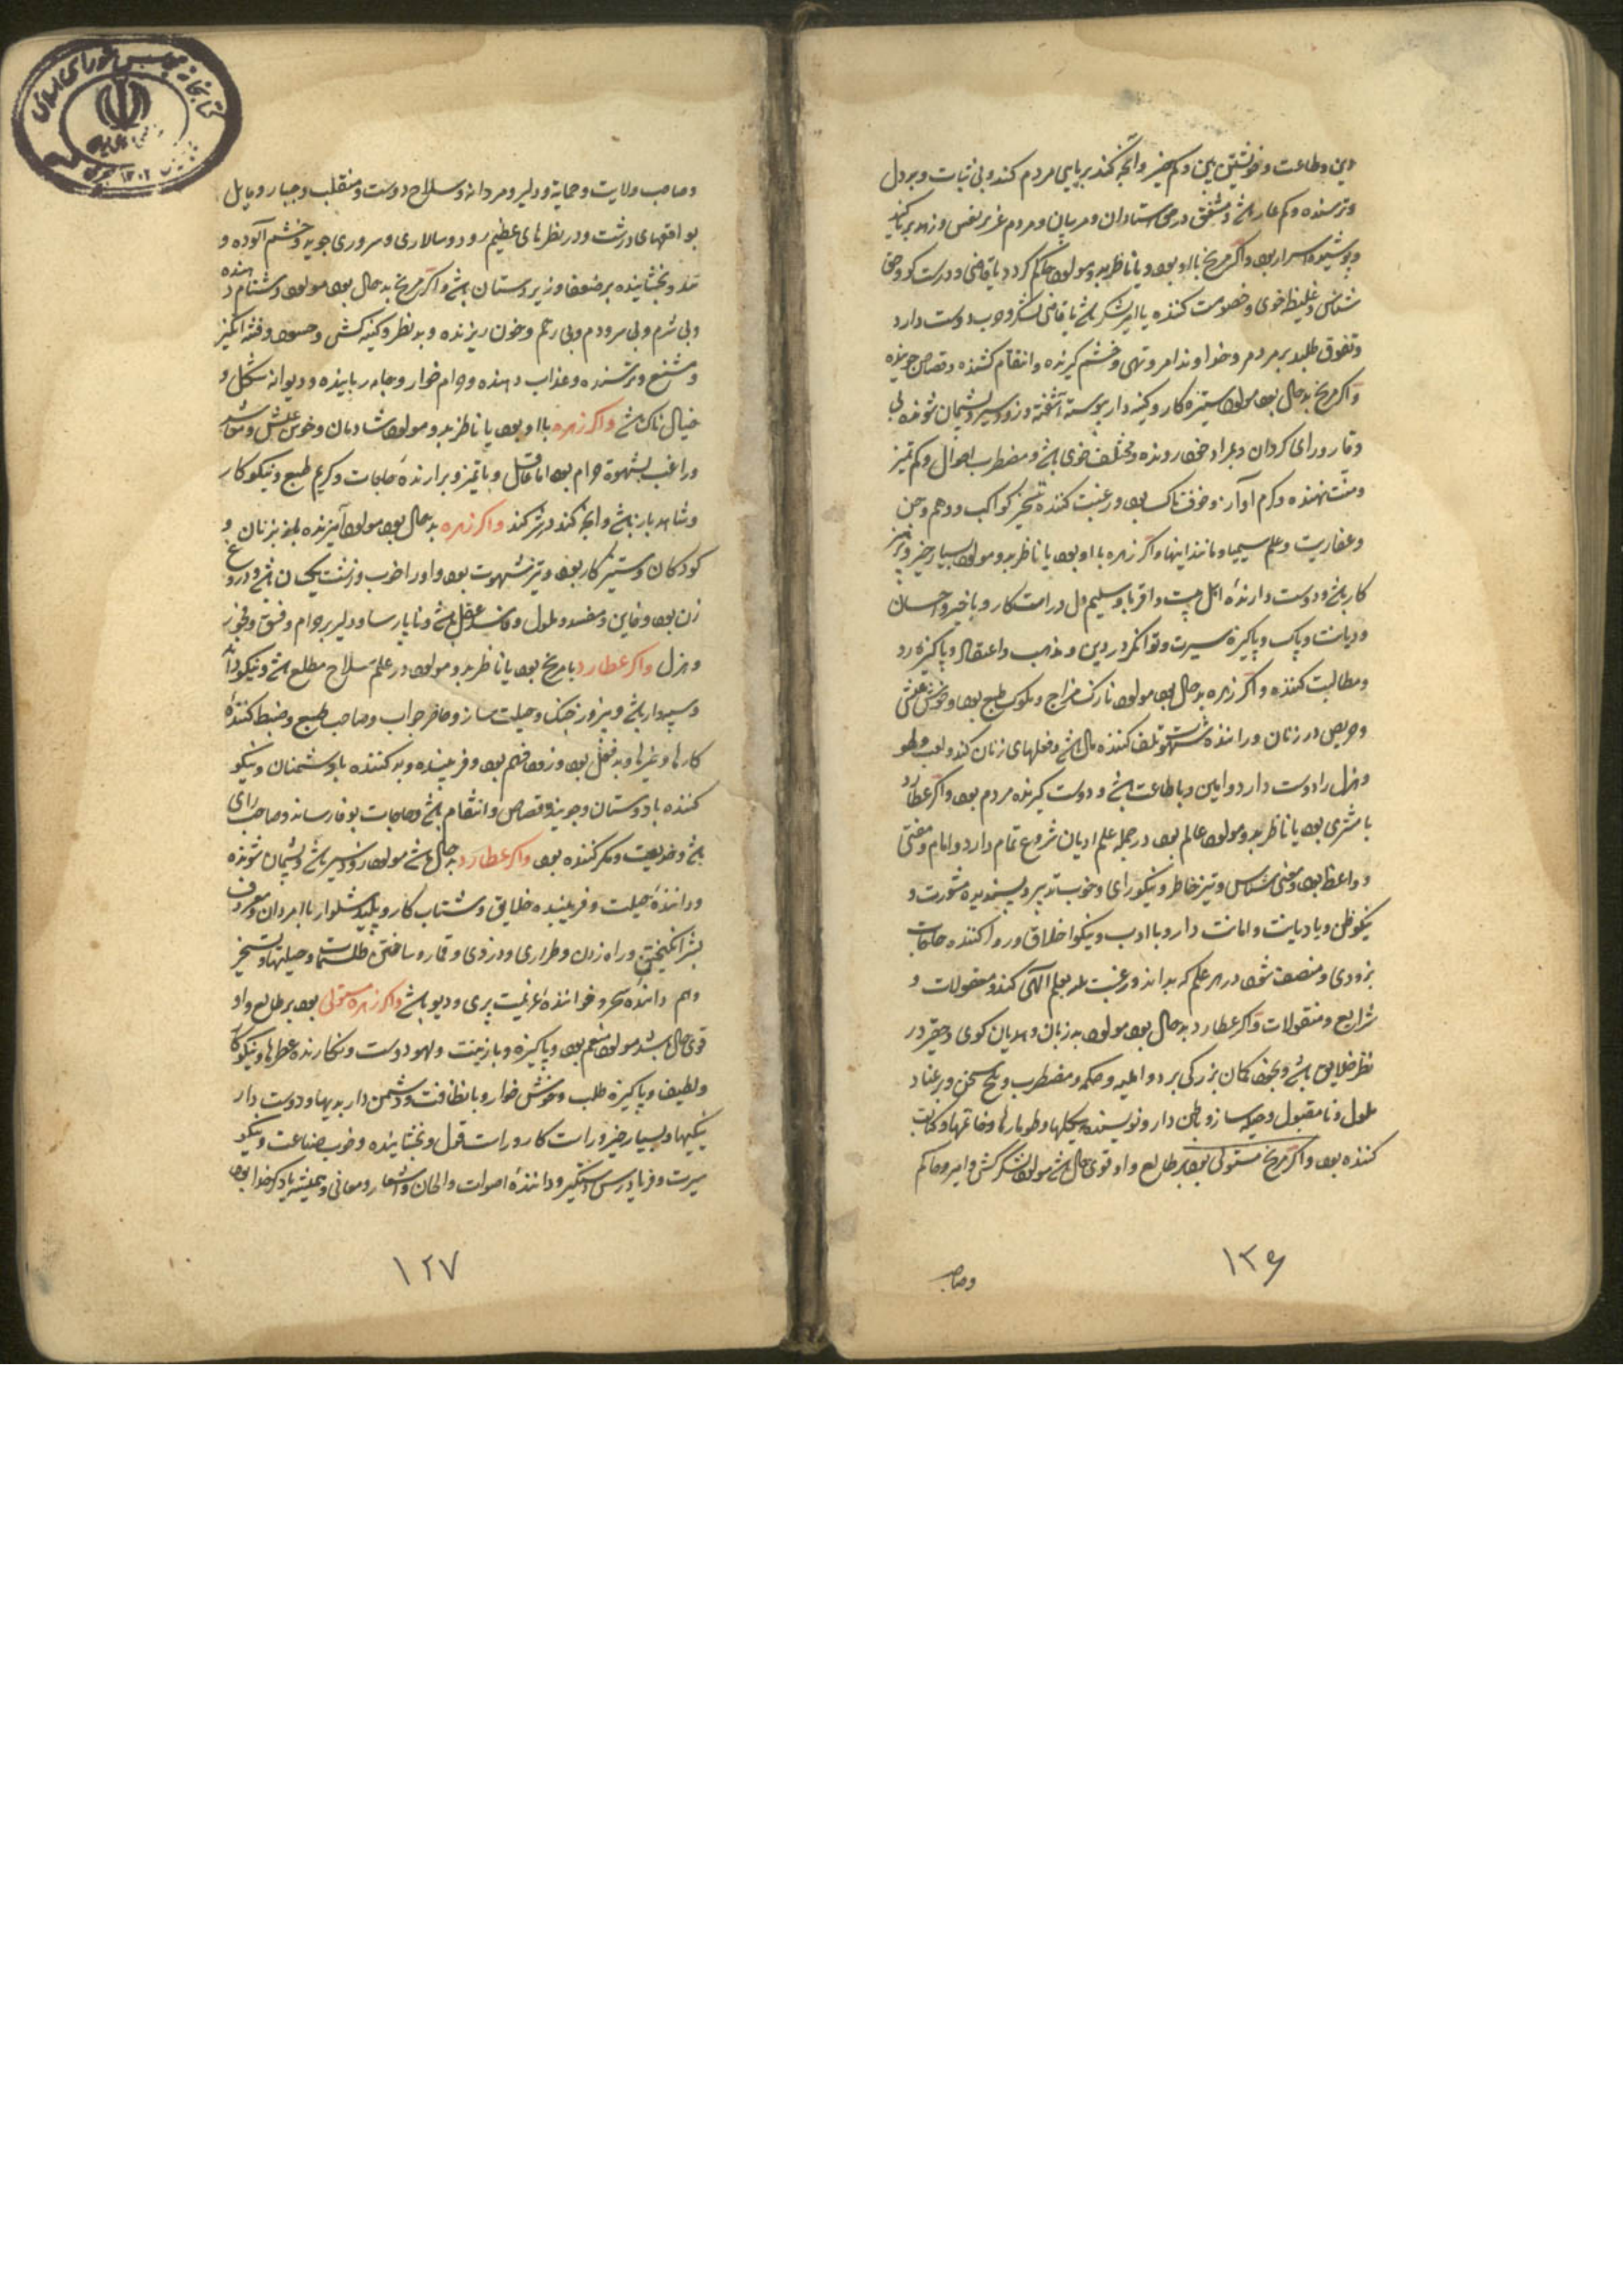 این و طاعت و خویشتن بین و کم خیز و آنچه کند بریایی مردم کند و بی ثبات و بردل
و ترسنده و کم عار باشد و مشفق در حق استادان و مربیان و مردم عزیز نفس و زهد بریا کند
و پوشیده اسرار بود و اگر مریخ با او بود و یا ناظر بدو مولود حاکم گردد یا قاضی و درست کو و حق
شناس و غلیظ خوی و خصومت کننده یا امیر لشکر باشد یا قاضی لشکر و حرب دوست دارد
و تفوق طلبد بر مردم و خداوند امر و نهی و خشم گیرنده و انتقام کشنده و قصاص جوینده
و اگر مریخ بدحال بود مولود ستیزه کار و کینه دار پیوسته آشفته و زود سیر و پشیمان شونده بی
وقار و رای گردان و بمراد خود رونده و مختلف خوی باشد و مضطرب احوال و کم تمیز
و منت نهنده و کرم آواز و خوفناک بود و رغبت کننده تسخیر کواکب و وهم و جن
و عفاریت و علم سیمیا و مانند اینها و اگر زهره با او بود یا ناظر بدو مولود بسیار خیر و پرهیز
کار باشد و دوست دارنده اهل بیت و اقربا و سلیم دل و راست کار و با خیر و احسان
و دیانت و پاک و پاکیزه سیرت و توانگر در دین و مذهب و اعتقاد و پاکیزه رو
و مطالبت کننده و اگر زهره بدحال بود مولود نازک مزاج و ملوک طبع بود و خوش عیش
و حریص در زنان و راننده شهوت و تلف کننده مال باشد و فعلهای زنان کند و لعب و لهو
و هزل را دوست دارد و امین و با طاعت باشد و دوست گیرنده مردم بود و اگر عطارد
با مشتری بود یا ناظر بدو مولود عالم بود در جمله علم ادیان شروع تمام دارد و امام و مفتی
و واعظ بود و معنی شناس و تیز خاطر و نیکو رای و خوب تدبیر و پسندیده مشورت و
نیکو ظن و با دیانت و امانت دار و با ادب و نیکو اخلاق و روا کننده حاجات
بزودی و منصف شود در هر علم که بداند و رغبت بعلم الهی کند و معقولات و
شرایع و منقولات و اگر عطارد بدحال بود مولود بد زبان و هذیان گوی و حقیر در
نظر خلایق باشد و بخود گمان بزرگی برد و ابله و حکمه و مضطرب و تلخ سخن و پر عناد
ملول و نا مقبول و حیله ساز و باطن دار و نویسنده هیکلها و طومارها و خاتمها و کتابت
کننده بود و اگر مریخ مستولی بود بر طالع و او قوی حال باشد مولود لشکر کش و امیر و حاکم
۱۲۶
وصاحب
و صاحب ولایت و حمایة و دلیر و مردانه و سلاح دوست و متقلب و جبار و مایل
بواقعهای درشت و در نظرهای عظیم رود و سالاری و سروری جوید و خشم آلوده و
تند و بخشاینده بر ضعفا و زیردستان باشد و اگر مریخ بدحال بود مولود دشنام دهنده
و بی شرم و بی مردم و بی رحم و خون ریزنده و بد نظر و کینه کش و حسود و فتنه انگیز
و مشنع و ترسنده و عذاب دهنده و حرام خوار و جامه رباینده و دیوانه شکل و
خیال ناک باشد و اگر زهره با او بود یا ناظر بدو مولود شادمان و خوش عیش و معاشر
و راغب بشهوة حرام بود اما عاقل و باتمیز و برارنده حاجات و کریم طبع و نیکو کار
و شاهد باز باشد و آنچه کند در شر کند و اگر زهره بدحال بود مولود آمیزنده بود بزنان و
کودکان و ستیز کار بود و تیز شهوت بود و او را خوب و زشت یکسان باشد و دروغ
زن بود و خاین و مفسد و ملول و فاسد عقل باشد و ناپارسا و دلیر بر حرام و فسق و فجور
و هزل و اگر عطارد با مریخ بود یا ناظر بدو مولود در علم سلاح مطلع باشد و نیکو داند
و سپهدار باشد و پیروز جنگ و حیلت ساز و حاضر جواب و صاحب طبع و ضبط کننده
کارها و غیرها و بد فعل بود و زود فهم بود و فریبنده و بد کننده با دشمنان و نیکو
کننده با دوستان و جوینده قصاص و انتقام باشد و حاجات بوفا رساند و صاحب رای
باشد و خدیعت و مکر کننده بود و اگر عطارد بدحال باشد مولود زود سیر باشد و پشیمان شونده
و داننده حیلت و فریبنده خلایق و شتاب کار و پلید شلوار با امردان و معروف
بشر انگیختن و راه زدن و طراری و دزدی و قمار و ساختن طلسمات و حیلتها و تسخیر
وهم داننده سحر و خواننده عزیمت پری و دیو باشد و اگر زهره مستولی بود بر طالع و او
قوی حال باشد مولود منعم بود و پاکیزه و با زینت و لهو دوست و بکار دارنده عطرها و نیکو کار
و لطیف و پاکیزه طلب و خوش خوار و با نظافت و دشمن دار بدیها و دوست دار
نیکیها و بسیار خیر و راست کار و راست قول و بخشاینده و خوب صناعت و نیکو
سیرت و فریادرس و دستگیر و داننده اصوات و الحان و اشعار و معانی و همیشه یاد کرد خدا بود
۱۲۷
کتابخانه مجلس شورای اسلامی